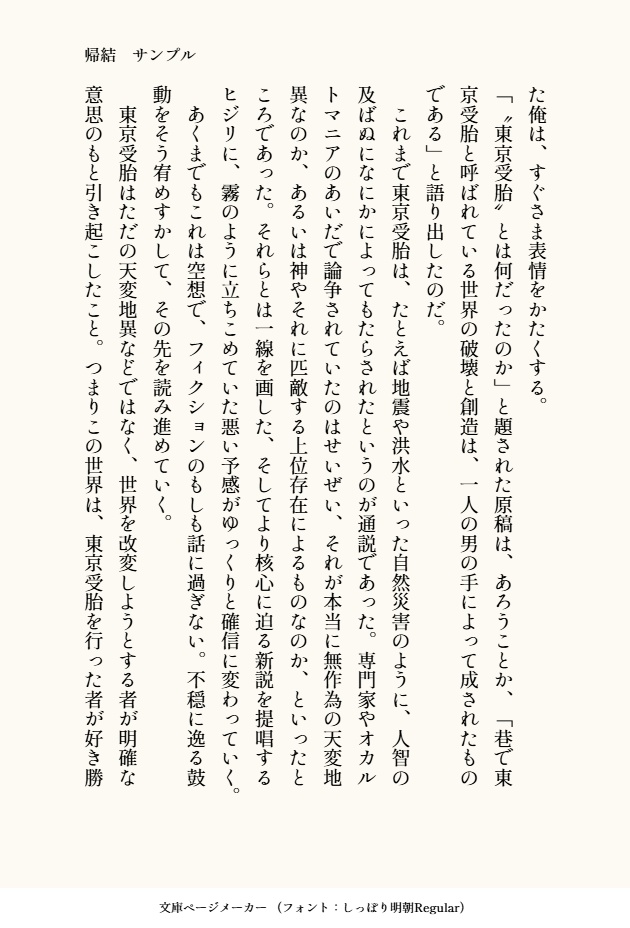 帰結　サンプル
た俺は、すぐさま表情をかたくする。
「〝東京受胎〟とは何だったのか」と題された原稿は、あろうことか、「巷で東
京受胎と呼ばれている世界の破壊と創造は、一人の男の手によって成されたもの
である」と語り出したのだ。
　これまで東京受胎は、たとえば地震や洪水といった自然災害のように、人智の
及ばぬになにかによってもたらされたというのが通説であった。専門家やオカル
トマニアのあいだで論争されていたのはせいぜい、それが本当に無作為の天変地
異なのか、あるいは神やそれに匹敵する上位存在によるものなのか、といったと
ころであった。それらとは一線を画した、そしてより核心に迫る新説を提唱する
ヒジリに、霧のように立ちこめていた悪い予感がゆっくりと確信に変わっていく。
　あくまでもこれは空想で、フィクションのもしも話に過ぎない。不穏に逸る鼓
動をそう宥めすかして、その先を読み進めていく。
　東京受胎はただの天変地異などではなく、世界を改変しようとする者が明確な
意思のもと引き起こしたこと。つまりこの世界は、東京受胎を行った者が好き勝
文庫ページメーカー（フォント：しっぽり明朝Regular）